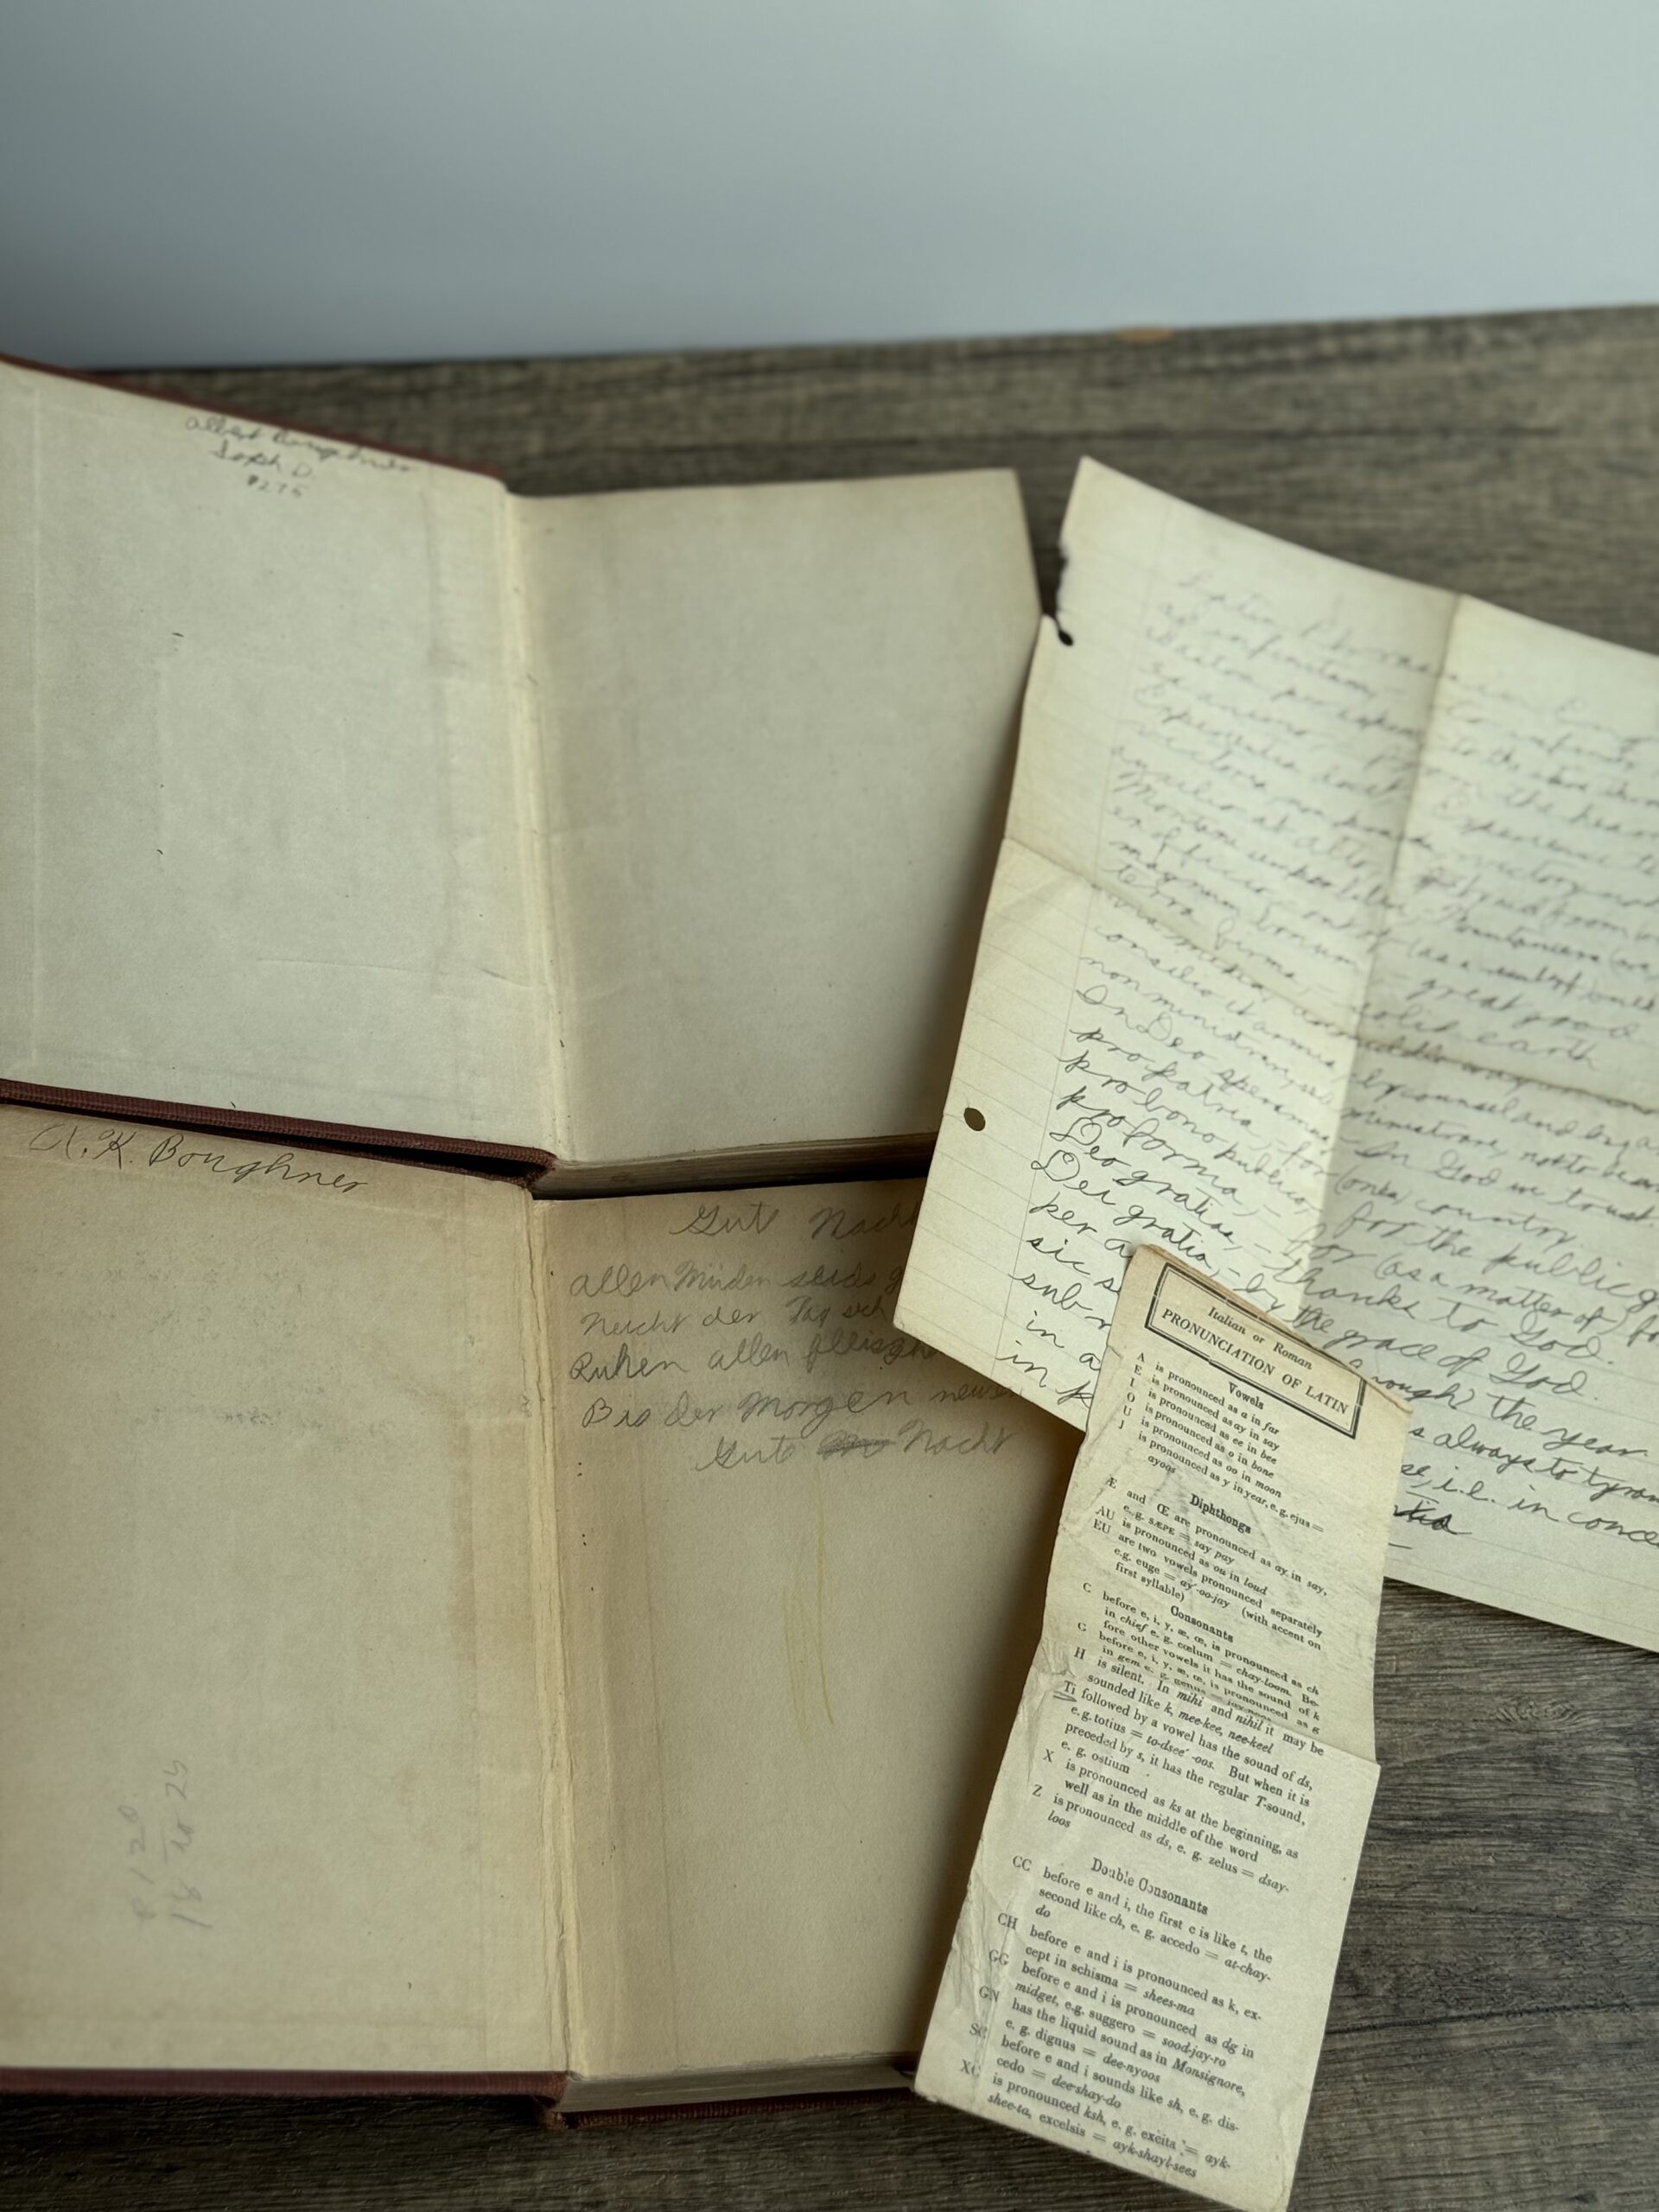 Albert Boughner
Soph D.
$2.75
A. K. Boughner
P 120
18 to 25
Gute Nacht
Allen Müden seids
Neicht der Tag sich
Ruhen allen fleisge
Bis der Morgen neue
Gute Nacht
Latin Phrases in
ad infinitum, - to infinity
ex animo, - from the heart
Experientia docet - Experience
victoria non - victory not
Montani semper liberi, - Mountaineers
ex officio - out of (as a result of)
magnum bonum - great good
terra firma, - solid earth
via media, - middle way
consilio et armis, - by counsel and by
non ministrari, sed ministrare, not to be
In Deo speramus, - In God we trust.
pro patria, - for (ones) country.
pro bono publico, - for the public
pro forma, - for (as a matter of)
Deo gratias, - thanks to God.
Dei gratia, - by the grace of God.
per a rough) the year.
sic s s always to tyran
sub r se, i.e. in conce
in a
in p
Italian or Roman
PRONUNCIATION OF LATIN
Vowels
A is pronounced as a in far
E is pronounced as ay in say
I is pronounced as ee in bee
O is pronounced as o in bone
U is pronounced as oo in moon
J is pronounced as y in year, e.g. ejus =
ayoos
Diphthongs
Æ and Œ are pronounced as ay in say,
e.g. SÆPE = say pay
AU is pronounced as ou in loud
EU are two vowels pronounced separately
e.g. euge = ay-oo-jay (with accent on
first syllable)
Consonants
C before e, i, y, æ, œ, is pronounced as ch
in chief e. g. cœlum = chay-loom. Be-
fore other vowels it has the sound of k
G before e, i, y, æ, œ, is pronounced as g
in gem e. g. genus = jay-noos
H is silent. In mihi and nihil it may be
sounded like k, mee-kee, nee-keel
Ti followed by a vowel has the sound of ds,
e.g. totius = to-dsee'-oos. But when it is
preceded by s, it has the regular T-sound,
e. g. ostium
X is pronounced as ks at the beginning, as
well as in the middle of the word
Z is pronounced as ds, e. g. zelus = dsay-
loos
Double Consonants
CC before e and i, the first c is like t, the
second like ch, e. g. accedo = at-chay-
do
CH before e and i is pronounced as k, ex-
cept in schisma = shees-ma
GG before e and i is pronounced as dg in
midget, e.g. suggero = sood-jay-ro
GN has the liquid sound as in Monsignore,
e. g. dignus = dee-nyoos
SC before e and i sounds like sh, e. g. dis-
cedo = dee-shay-do
XC is pronounced ksh, e. g. excita = ayk-
shee-ta, excelsis = ayk-shayl-sees